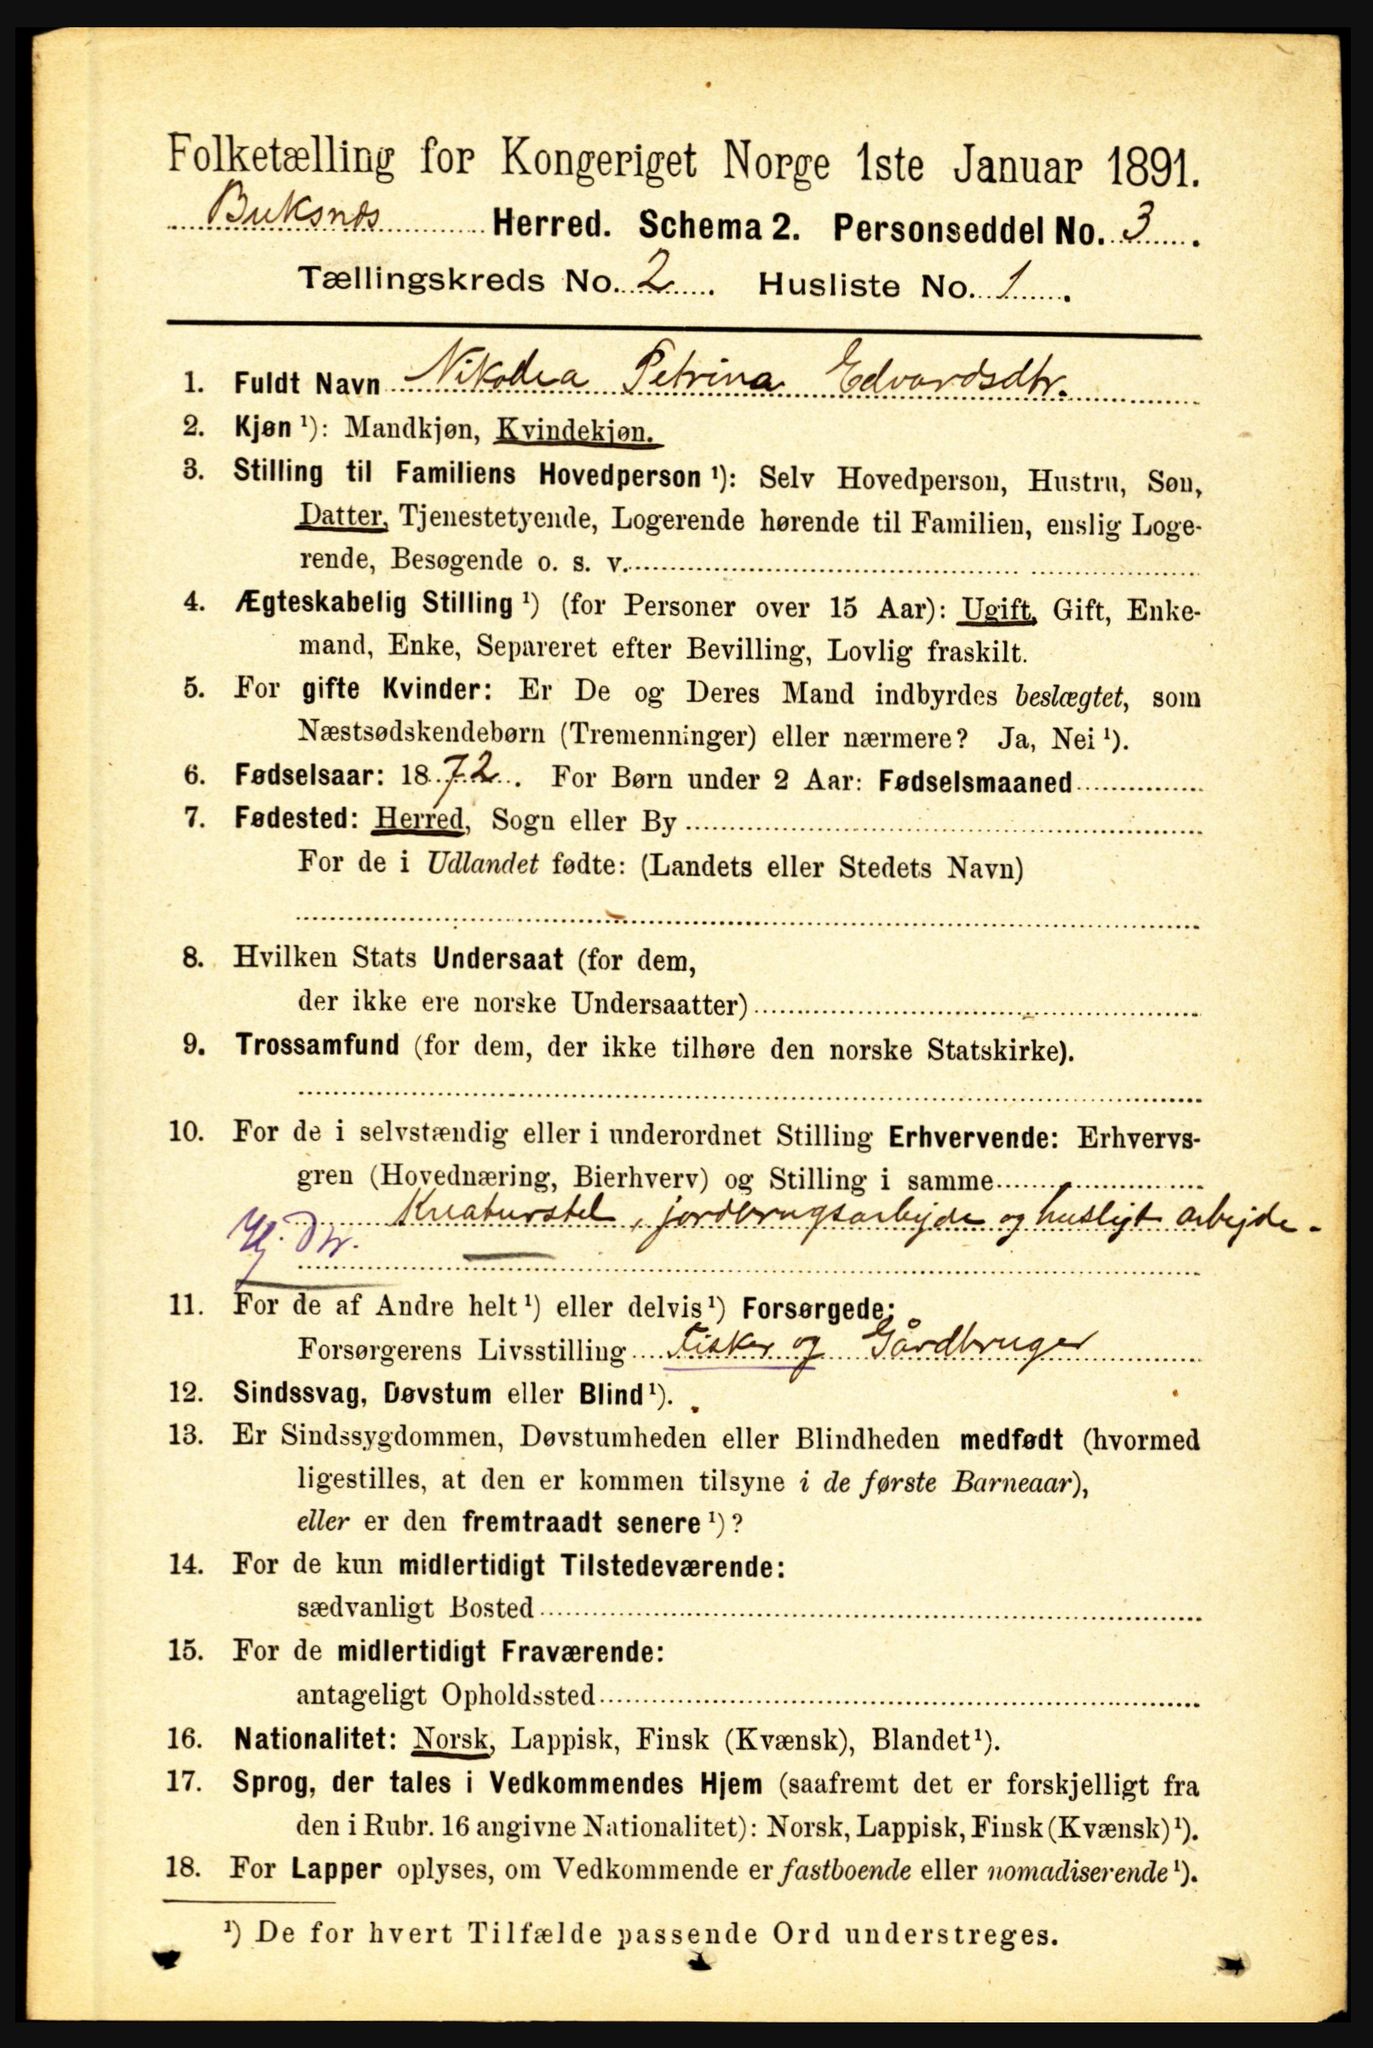 Folketælling for Kongeriget Norge 1ste Januar 1891.
Buksnes Herred. Schema 2. Personseddel No. 3.
Tællingskreds No. 2. Husliste No. 1.
1. Fuldt Navn Nikodea Petrina Edvardsdtr.
2. Kjøn ¹): Mandkjøn, Kvindekjøn.
3. Stilling til Familiens Hovedperson ¹): Selv Hovedperson, Hustru, Søn,
Datter, Tjenestetyende, Logerende hørende til Familien, enslig Loge-
rende, Besøgende o. s. v.
4. Ægteskabelig Stilling ¹) (for Personer over 15 Aar): Ugift, Gift, Enke-
mand, Enke, Separeret efter Bevilling, Lovlig fraskilt.
5. For gifte Kvinder: Er De og Deres Mand indbyrdes beslægtet, som
Næstsødskendebørn (Tremenninger) eller nærmere? Ja, Nei ¹).
6. Fødselsaar: 1872. For Børn under 2 Aar: Fødselsmaaned
7. Fødested: Herred, Sogn eller By
For de i Udlandet fødte: (Landets eller Stedets Navn)
8. Hvilken Stats Undersaat (for dem,
der ikke ere norske Undersaatter)
9. Trossamfund (for dem, der ikke tilhøre den norske Statskirke).
10. For de i selvstændig eller i underordnet Stilling Erhvervende: Erhvervs-
gren (Hovednæring, Bierhverv) og Stilling i samme
Kreaturstel, jordbrugsarbejde og husligt arbejde.
Hj. Dtr.
11. For de af Andre helt ¹) eller delvis ¹) Forsørgede:
Forsørgerens Livsstilling Fisker og Gårdbruger
12. Sindssvag, Døvstum eller Blind ¹).
13. Er Sindssygdommen, Døvstumheden eller Blindheden medfødt (hvormed
ligestilles, at den er kommen tilsyne i de første Barneaar),
eller er den fremtraadt senere ¹)?
14. For de kun midlertidigt Tilstedeværende:
sædvanligt Bosted
15. For de midlertidigt Fraværende:
antageligt Opholdssted
16. Nationalitet: Norsk, Lappisk, Finsk (Kvænsk), Blandet ¹).
17. Sprog, der tales i Vedkommendes Hjem (saafremt det er forskjelligt fra
den i Rubr. 16 angivne Nationalitet): Norsk, Lappisk, Finsk (Kvænsk) ¹).
18. For Lapper oplyses, om Vedkommende er fastboende eller nomadiserende ¹).
¹) De for hvert Tilfælde passende Ord understreges.